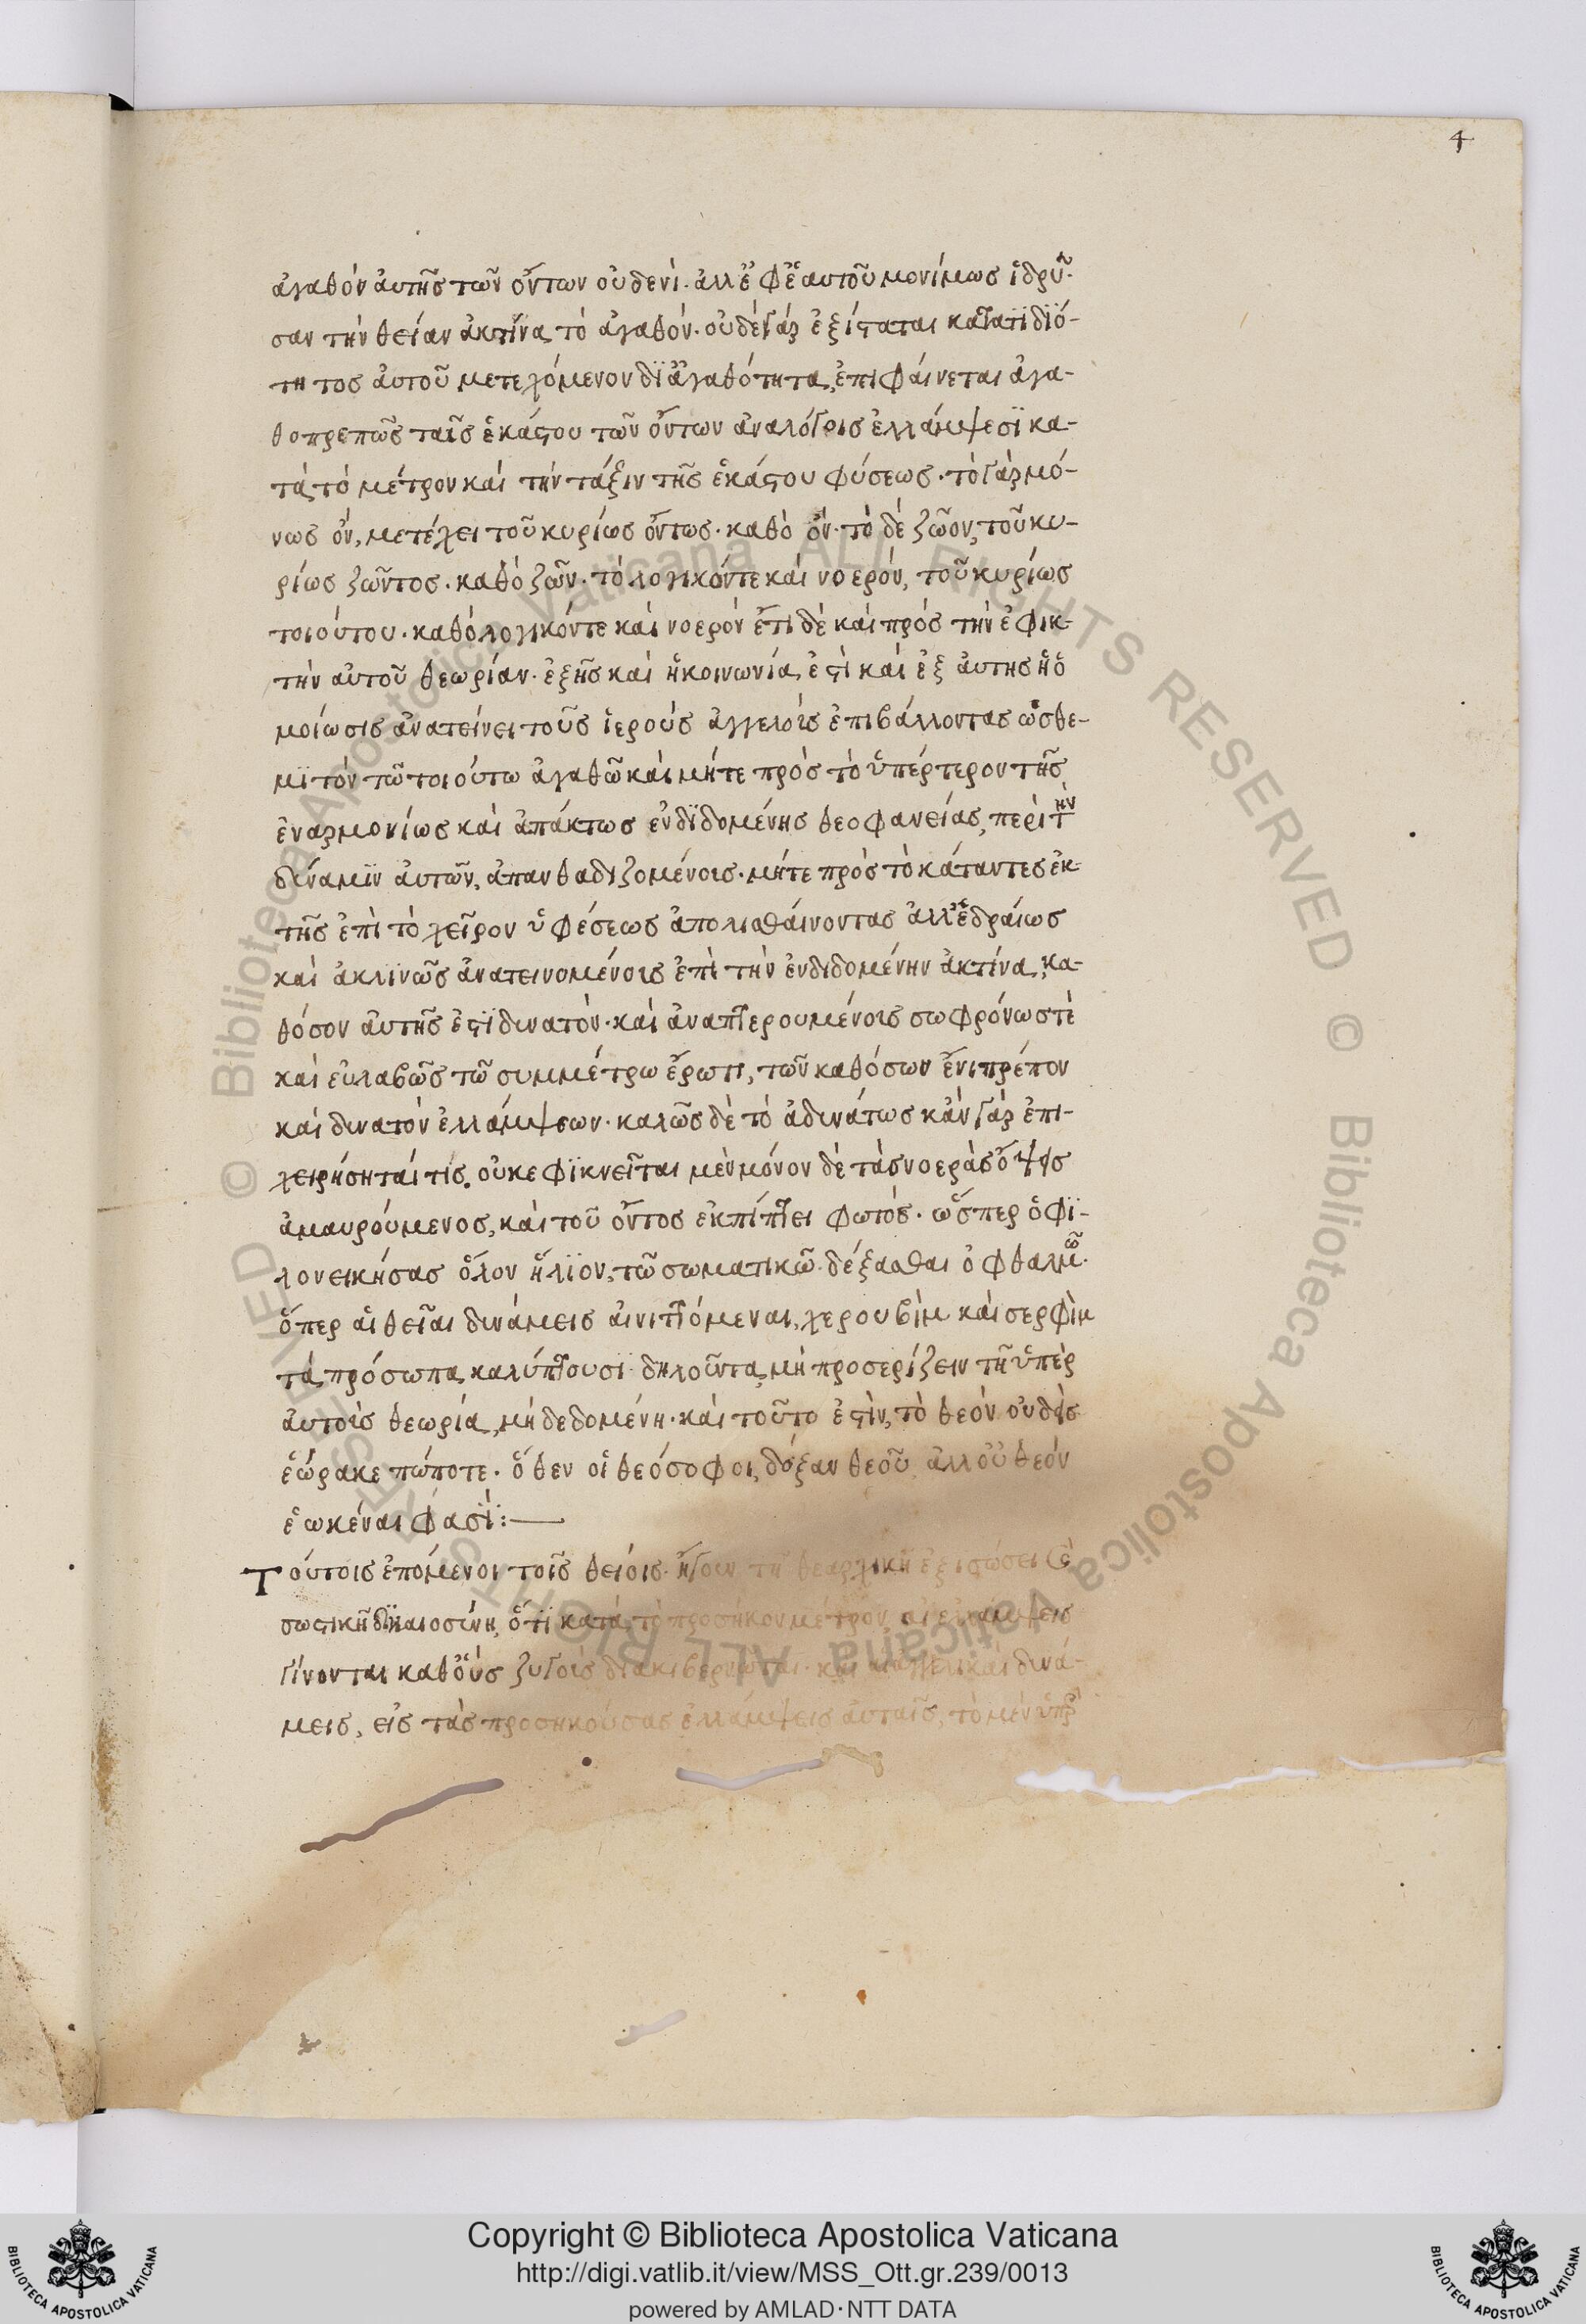 4
ἀγαθόν ἀυτῆς τῶν ὄντων οὐδενὶ· ἀλλἐφἑαυτοῦ μονίμως ἱδρῦ-
σαν τὴν θείαν ἀκτῖνα τὸ ἀγαθόν· οὐδὲ γάρ ἐξίσταται κατατϊδϊό-
τητος ἀυτοῦ μετεχόμενον δϊἀγαθότητα, ἐπιφάινεται ἀγα-
θοπρεπῶς ταῖς ἑκάστου τῶν ὄντων ἀναλόγοις ἐλλάμψεσϊ κα-
τὰ τὸ μέτρον καὶ τὴν τάξιν τῆς ἑκάστου φύσεως· τὸ γὰρ μό-
νως ὄν, μετέχει τοῦ κυρίως ὄντως· καθὸ ὄν· τὸ δὲ ζῶον, τοῦ κυ-
ρίως ζῶντος· καθὸ ζῶν· τὸ λογικόντε καὶ νοερόν, τοῦ κυρίως
τοιούτου· καθὸ λογικόντε καὶ νοερόν ἔτι δὲ καὶ πρός τὴν ἐφικ-
τὴν αὐτοῦ θεωρίαν· ἐξῆς καὶ ἡ κοινωνία ἐστὶ καὶ ἐξ ἀυτης ἡ ὁ
μοίωσις ἀνατείνει τοῦς ἱερούς ἀγγελοις ἐπιβάλλοντας ὡς θε-
μϊτόν τῶ τοιούτω ἀγαθῶ καὶ μήτε πρὸς τὸ ὑπέρτερον τῆς
ἐναρμονίως καὶ ἀπάκτως ἐνδϊδομένης θεοφανείας, περὶ τὴν
δύναμϊν ἀυτῶν, ἀπανθαδιζομένοις· μήτε πρὸς τὸ κάταντες ἐκ
τῆς ἐπὶ τὸ χεῖρον ὑφέσεως ἀπολισθάινοντας ἀλλἑδραίως
καὶ ἀκλϊνῶς ἀνατεινομένοις ἐπὶ τὴν ἐνδιδομένην ἀκτίνα, κα-
θόσον ἀυτῆς ἐστϊ δυνατὸν· καὶ ἀναπτερουμένοις σωφρόνωστὲ
καὶ εὐλαβῶς τῶ συμμέτρω ἔρωτι, τῶν καθόσων ἔνι πρέπον
καὶ δυνατὸν ἐλλάμψεων· καλῶς δὲ τὸ ἀδυνάτως κἀν γάρ ἐπι-
χειρήσηταί τίς, οὐκ εφϊκνεῖται μὲν μόνον δὲ τὰς νοερὰς ὄψεις
ἀμαυρούμενος, καὶ τοῦ ὄντος ἐκπίπτει φωτός· ὥσπερ ὁ φϊ-
λονεικήσας ὅλον ἥλϊον, τῶ σωματικῶ δέξασθαι ὀφθαλμῶ·
ὅπερ αἱ θεῖαι δυνάμεις ἀινιττόμεναι, χερουβὶμ καὶ σερφὶμ
τὰ πρόσωπα καλύπτουσϊ δηλοῦντα, μὴ προσερίζειν τῆ ὑπὲρ
ἀυτοὶς θεωρία, μὴ δεδομένη· καὶ τοῦτο ἐστὶν, τὸ θεὸν οὐδεὶς
ἑώρακε πώποτε· ὅθεν οἱ θεόσοφοι, δόξαν θεοῦ ἀλλοὐ θεόν
ἑωκέναι φασϊ:—
Τούτοις ἑπόμενοι τοῖς θείοις· ἤγουν τῆ θεαρχικῆ ἐξισώσει
σωστικῆ δϊκαιοσύνη, ὅτϊ κατὰ τὸ προσήκον μέτρον αἱ ἐλλάμψεις
γίνονται καθοὓς ζυγοὶς διακυβερνῶται· καὶ ἀγγελικαὶ δυνά-
μεις, εἰς τὰς προσηκούσας ἐλλάμψεις ἀυταῖς, τὸ μὲν ὑπὲρ
Copyright © Biblioteca Apostolica Vaticana
http://digi.vatlib.it/view/MSS_Ott.gr.239/0013
powered by AMLAD·NTT DATA
BIBLIOTECA APOSTOLICA VATICANA
BIBLIOTECA APOSTOLICA VATICANA
© Biblioteca Apostolica Vaticana ALL RIGHTS RESERVED © Biblioteca Apostolica Vaticana ALL RIGHTS RESERVED